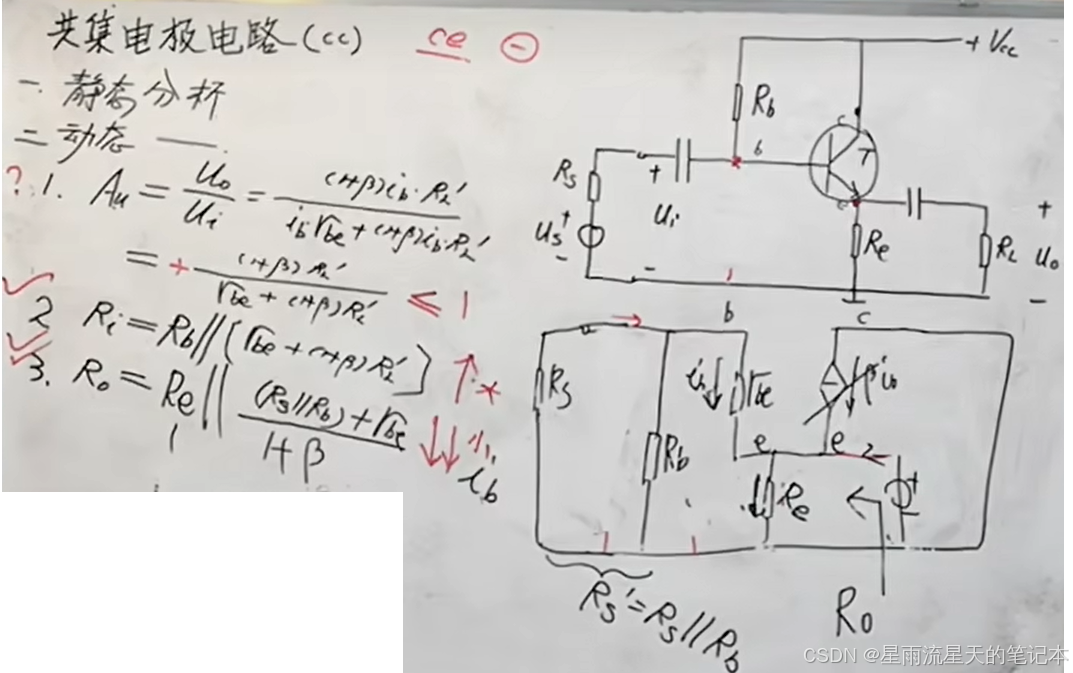 共集电极电路(cc) ce ⊖
一.静态分析
二动态 ——.
? 1. Au = Uo/Ui = (1+β)ib·RL' / ib rbe+(1+β)ib·RL'
= + (1+β)RL' / rbe+(1+β)RL' ≤ 1
2 Ri = Rb//[rbe+(1+β)RL']
3. Ro = Re // (Rs//Rb)+rbe / 1+β
ib
1
+Vcc
Rb
c
b
T
e
Rs
+
Ui
Us
+
-
-
Re
RL
+
Uo
-
b
c
Rs
ib
rbe
βib
Rb
e
e
Re
+
-
Rs'=Rs//Rb
Ro
CSDN @星雨流星天的笔记本